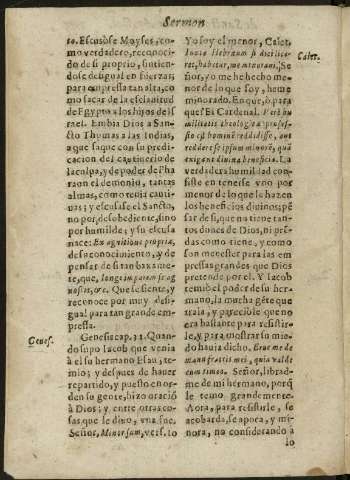 Sermon
to. Escusose Moyses, co-
mo verdadero, reconoci-
do de si proprio, sintien-
dose desigual en fuerzas;
para empressa tan alta, co-
mo sacar de la esclauitud
de Egypto a los hijos de Is-
rael. Embia Dios a San-
cto Thomas a las Indias,
a que saque con su predi-
cacion del captiuerio de
la culpa, y de poder de Pha
raon el demonio, tantas
almas, como tenia cauti-
uas; y escusase el Sancto,
no por desobediente, sino
por humilde; y su escusa
nace: Ex agnitione propria,
de su conocimiento, y de
pensar de si tan baxamen-
te, que, longe imparem se ag
nosceret, &c. Que se siente, y
reconoce por muy desi-
gual para tan grande em-
pressa.
Genes.
Genesis cap. 32. Quan-
do supo Iacob que venia
à el su hermano Esau, te-
mio; y despues de hauer
repartido, y puesto en or-
den su gente, hizo oració
à Dios; y entre otras co-
sas que le dixo, vna fue.
Señor, Minor sum, vers. 10
Yo soy el menor, Caiet.
Caiet.
Iuxta Hebraum sic dici lice-
ret, habetur, me minoraui. Se
ñor, yo me he hecho me-
nor de lo que soy, he me
minorado. En que, ò para
que? El Cardenal. Veræ hu
militatis theologia profes-
sio est hominẽ reddidisse, aut
reddere se ipsum minorẽ, quã
exigant diuina beneficia. La
verdadera humildad con-
siste en tenerse vno por
menor de lo que le hazen
los beneficios diuinos; pẽ
sar de si, que no tiene tan-
tos dones de Dios, ni prẽ-
das como tiene, y como
son menester para las em-
pressas grandes que Dios
pretende por el. Y Iacob
temio el poder de su her-
mano, la mucha gẽte que
traia, y parecible que no
era bastante para resistir-
le, y para mostrar su mie-
do hauia dicho. Erue me de
manu fratris mei, quia valde
eum timeo. Señor, librad-
me de mi hermano, porq̃
le temo grandemente.
Aora, para resistirle, se
acobarda, se apoca, y mi-
nora, no considerando à
lo